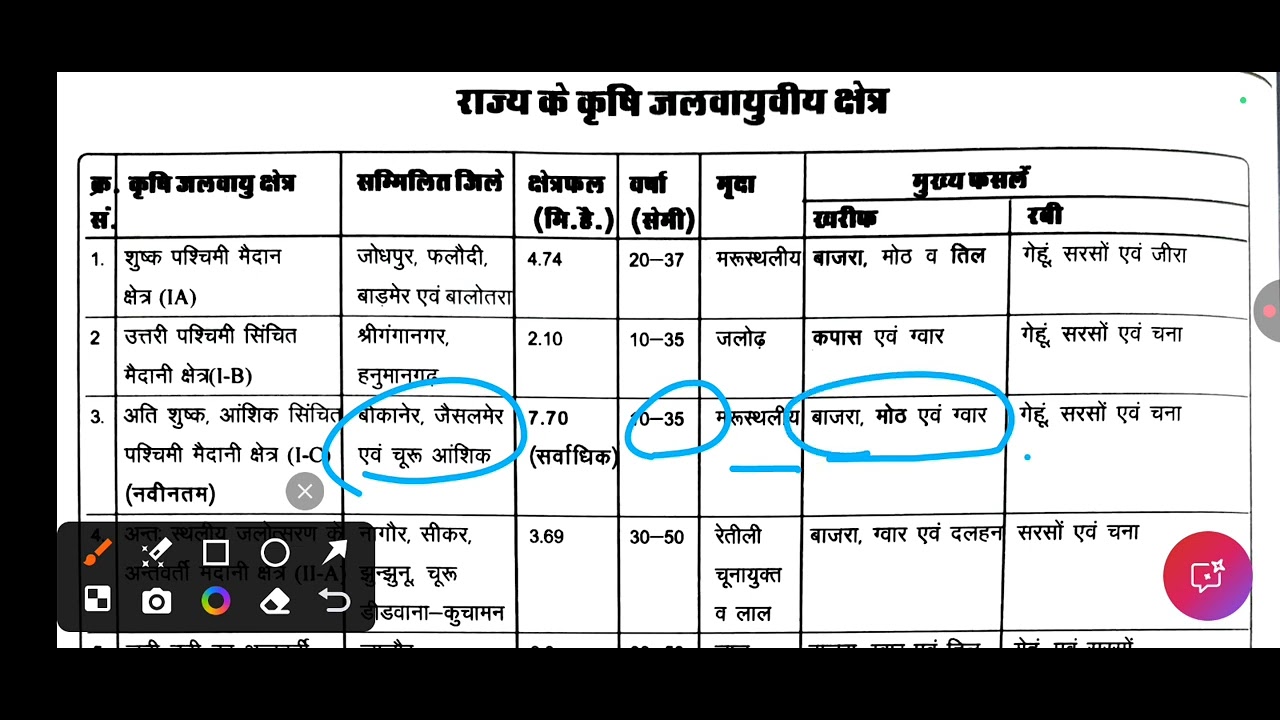 राज्य के कृषि जलवायुवीय क्षेत्र
क्र. कृषि जलवायु क्षेत्र सम्मिलित जिले क्षेत्रफल वर्षा मृदा मुख्य फसलें
सं. (मि.है.) (सेमी) खरीफ रबी
1. शुष्क पश्चिमी मैदान जोधपुर, फलौदी, 4.74 20–37 मरूस्थलीय बाजरा, मोठ व तिल गेहूं, सरसों एवं जीरा
क्षेत्र (IA) बाड़मेर एवं बालोतरा
2 उत्तरी पश्चिमी सिंचित श्रीगंगानगर, 2.10 10–35 जलोढ़ कपास एवं ग्वार गेहूं, सरसों एवं चना
मैदानी क्षेत्र(I-B) हनुमानगढ़
3. अति शुष्क, आंशिक सिंचित बीकानेर, जैसलमेर 7.70 10–35 मरूस्थलीय बाजरा, मोठ एवं ग्वार गेहूं, सरसों एवं चना
पश्चिमी मैदानी क्षेत्र (I-C) एवं चूरू आंशिक (सर्वाधिक)
(नवीनतम)
4. अन्तः स्थलीय जलोत्सरण के नागौर, सीकर, 3.69 30–50 रेतीली बाजरा, ग्वार एवं दलहन सरसों एवं चना
अन्तवर्ती मैदानी क्षेत्र (II-A) झुन्झुनू, चूरू चूनायुक्त
डीडवाना–कुचामन व लाल